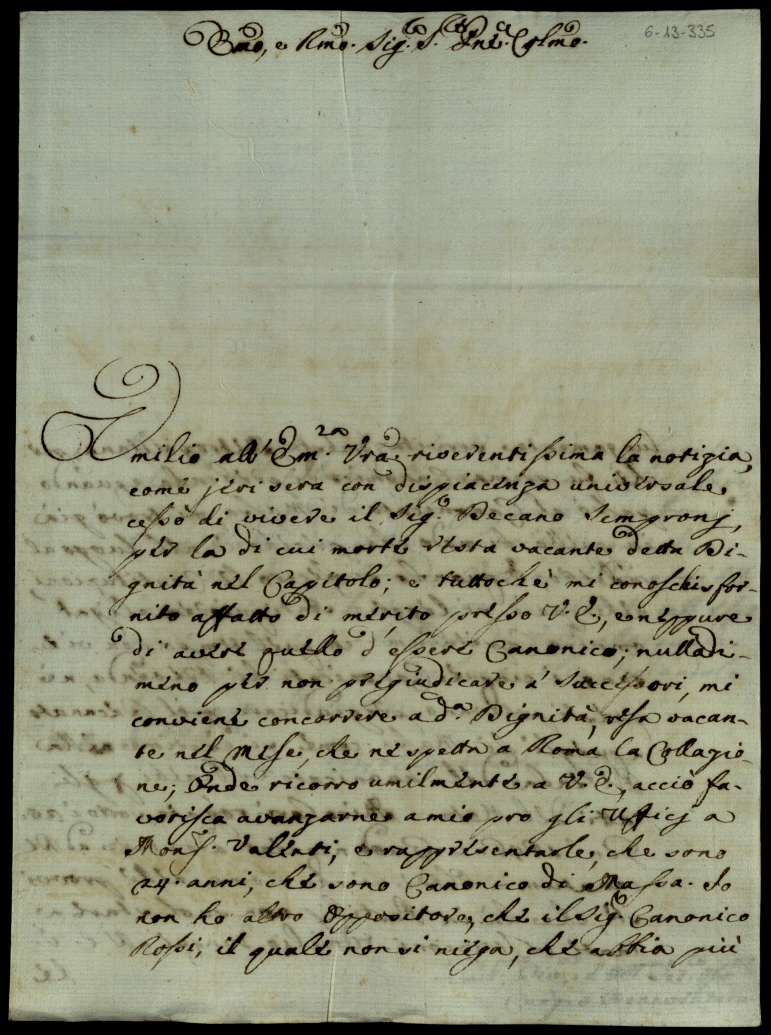 Emo, e Rmo. Sig.e S. Pne. Colmo.
6-13-335
Umilio all' Em.za Vra. riverentissima la notizia,
come jeri sera con dispiacenza universale
cessò di vivere il Sig.e Decano Sempronj,
per la di cui morte resta vacante detta Di-
gnità nel Capitolo; e tuttochè mi conoschi sfor-
nito affatto di merito presso V. E., e neppure
di avere quello d'essere Canonico; nulladi-
meno per non pregiudicare a' Successori, mi
conviene concorrere a d.a Dignità, resa vacan-
te nel Mese, che ne spetta a Roma la Collazio-
ne; Onde ricorro umilmente a V. E., acciò fa-
vorisca avanzarne a mio pro gli Ufficj a
Mons.r Valenti, e rappresentarle, che sono
24. anni, che sono Canonico di Massa. Io
non ho altro Oppositore, che il Sig.e Canonico
Rossi, il quale non si niega, che abbia più